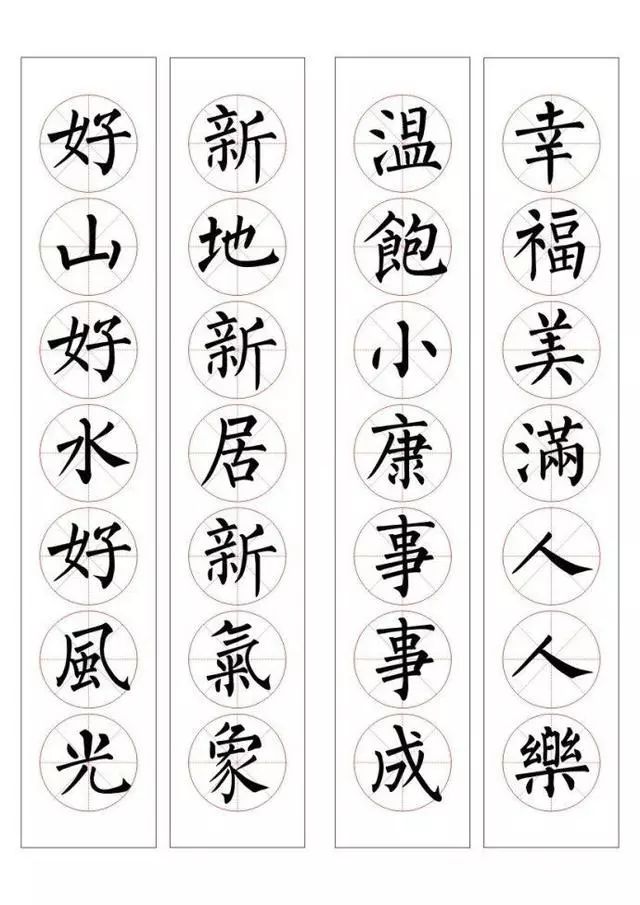 幸福美滿人人樂
溫飽小康事事成
新地新居新氣象
好山好水好風光